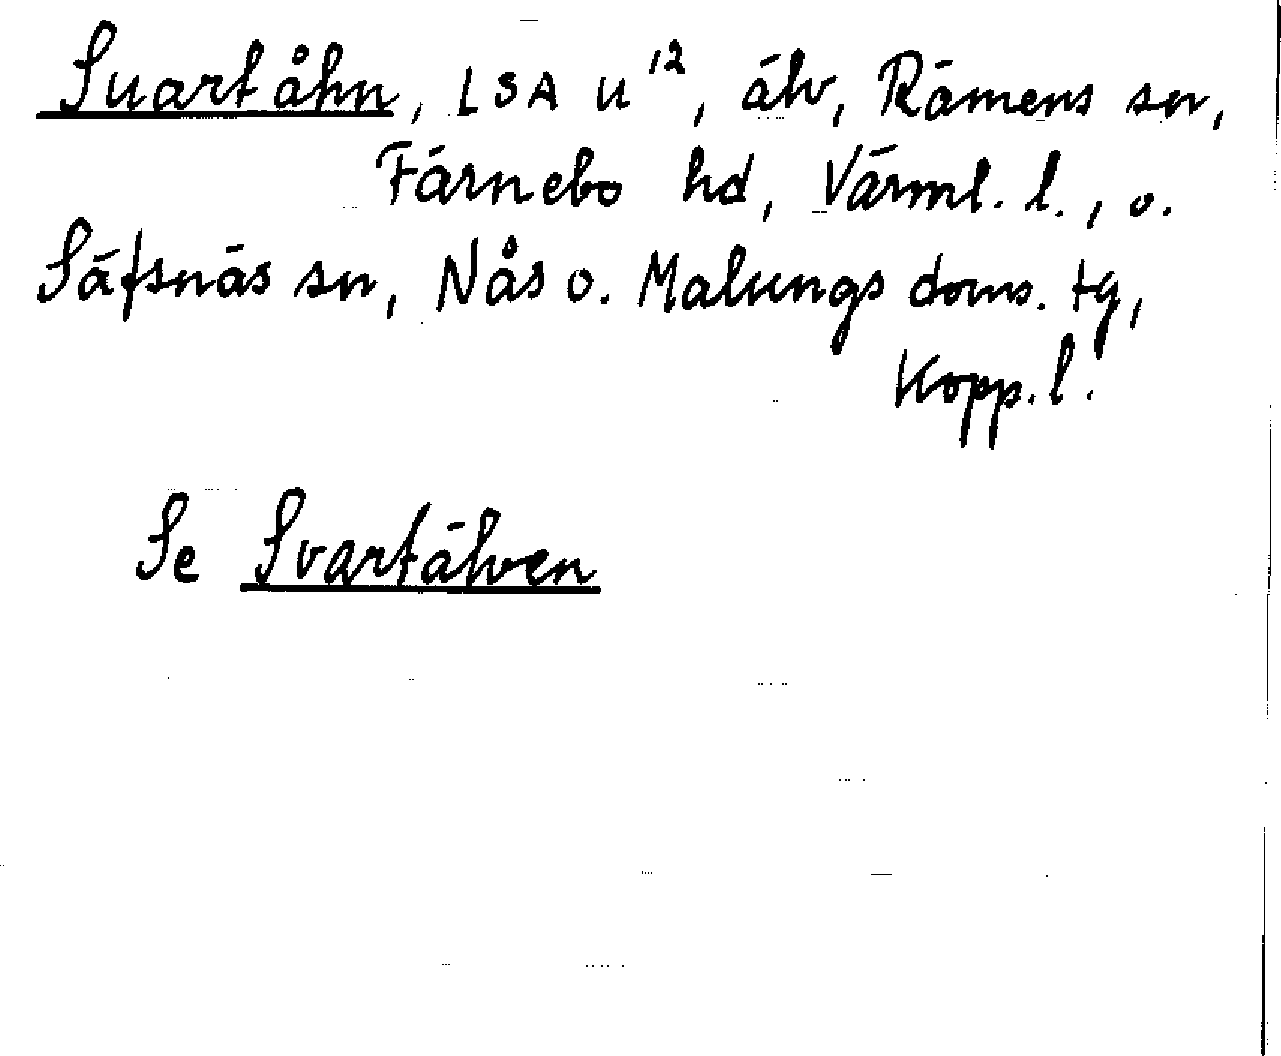 Suartåhn, LSA U¹², älv, Rämens sn,
Färnebo hd, Värml. l., o.
Säfsnäs sn, Nås o. Malungs doms. tg,
Kopp. l.
Se Svartälven